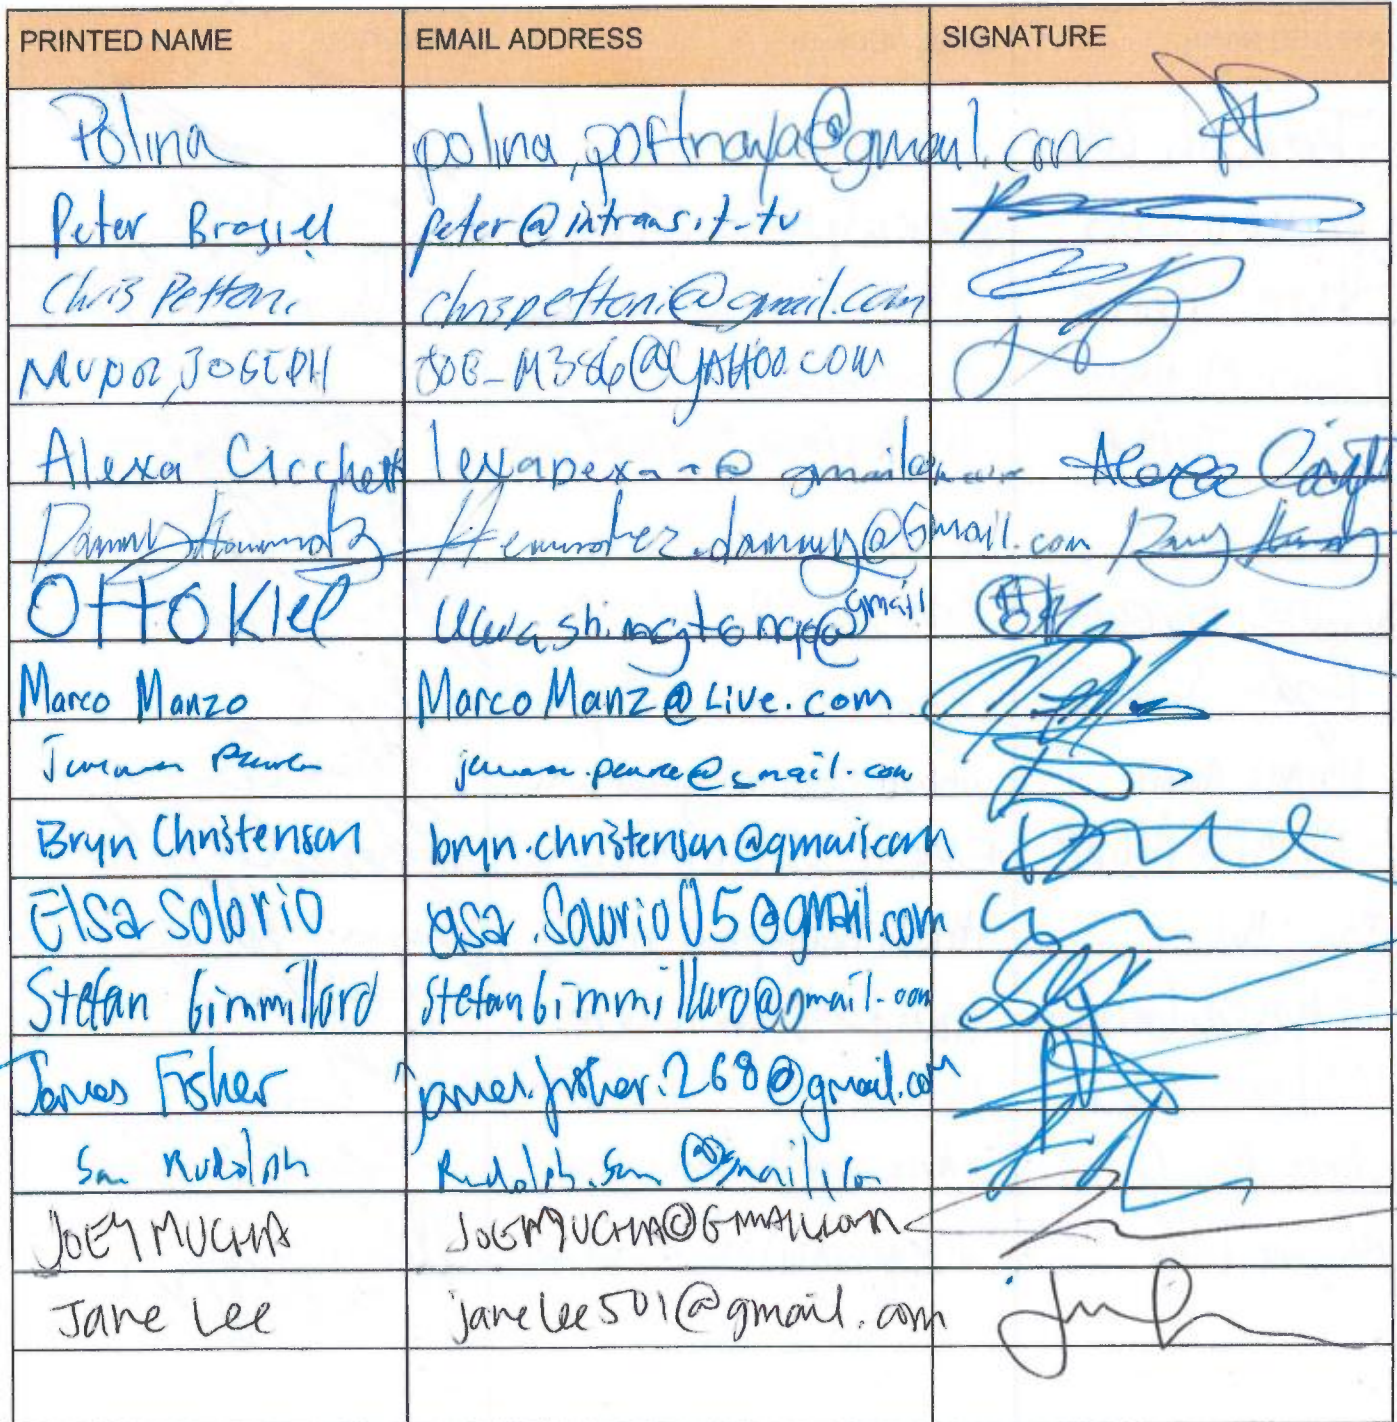 PRINTED NAME EMAIL ADDRESS SIGNATURE
Polina polina.portnaya@gmail.com
Peter Brasiel peter@intransit.tv
Chris Pettoni chrispettoni@gmail.com
JOSEPH JOE_M386@YAHOO.COM
Alexa Cicchetti Alexa
Danny Hernandez Hernandez.danny@Gmail.com
OttO Kiel @gmail
Marco Manzo MarcoManz@Live.com
Bryn Christenson bryn.christenson@gmail.com
Elsa Solorio elsa.Solorio05@gmail.com
Stefan Gimmillaro StefanGimmillaro@gmail.com
James Fisher james.fisher.268@gmail.com
Sam Rudolph Rudolph.Sam@Gmail.com
JOEY MUCHA JOEMUCHA@GMAIL.COM
Jane Lee janelee501@gmail.com